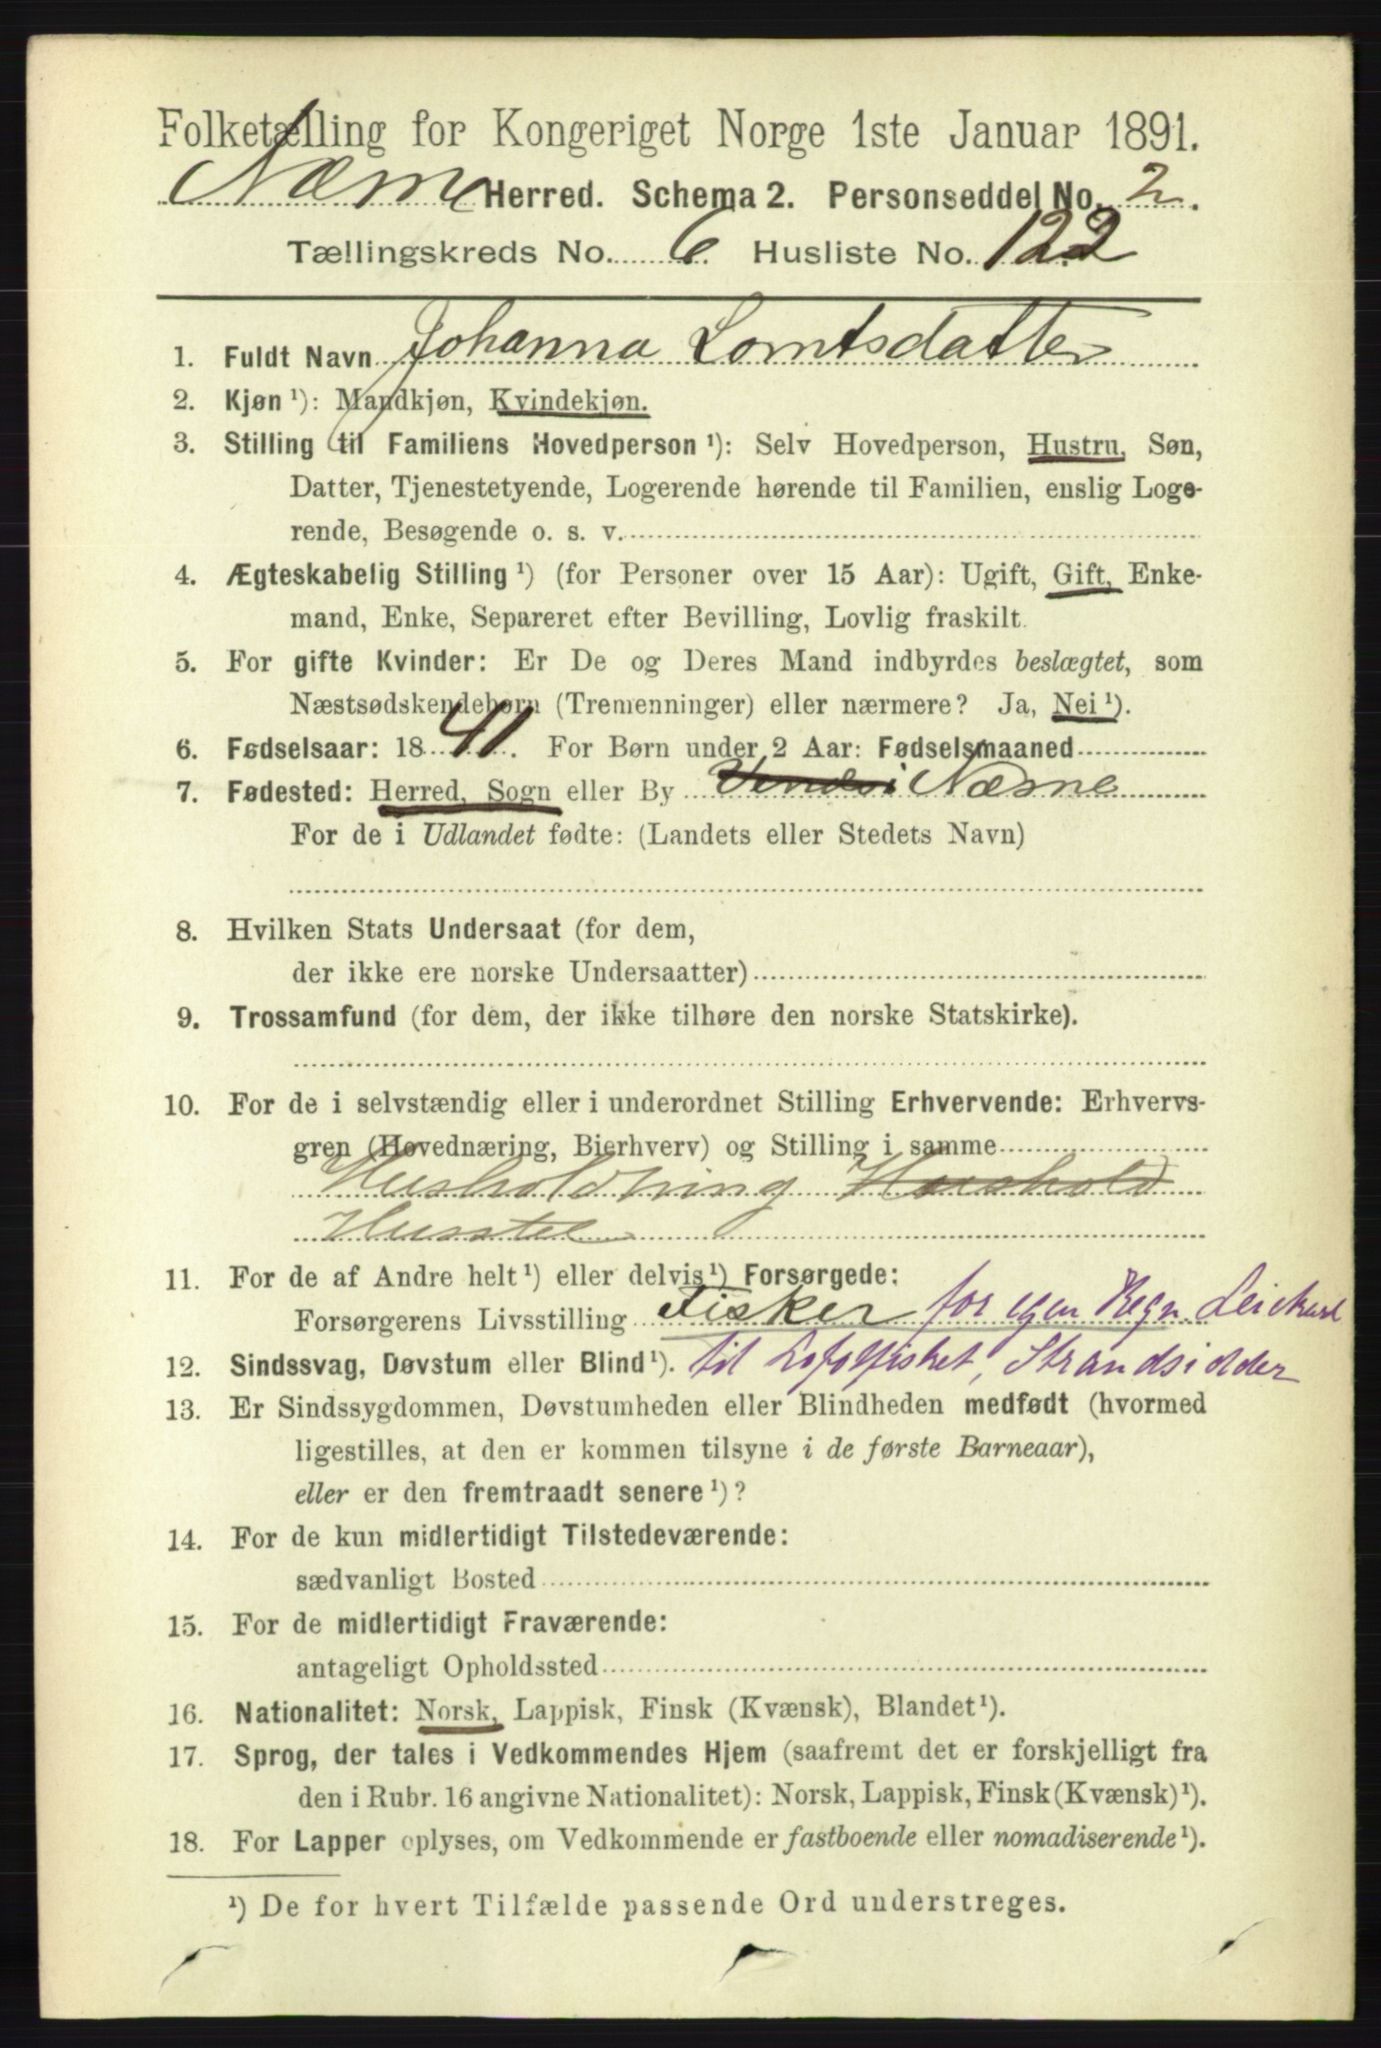 Folketælling for Kongeriget Norge 1ste Januar 1891.
Næsne Herred. Schema 2. Personseddel No. 2.
Tællingskreds No. 6. Husliste No. 122
1. Fuldt Navn Johanna Lorntsdatter
2. Kjøn ¹): Mandkjøn, Kvindekjøn.
3. Stilling til Familiens Hovedperson ¹): Selv Hovedperson, Hustru, Søn,
Datter, Tjenestetyende, Logerende hørende til Familien, enslig Loge-
rende, Besøgende o. s. v.
4. Ægteskabelig Stilling ¹) (for Personer over 15 Aar): Ugift, Gift, Enke-
mand, Enke, Separeret efter Bevilling, Lovlig fraskilt.
5. For gifte Kvinder: Er De og Deres Mand indbyrdes beslægtet, som
Næstsødskendebørn (Tremenninger) eller nærmere? Ja, Nei ¹).
6. Fødselsaar: 1841. For Børn under 2 Aar: Fødselsmaaned
7. Fødested: Herred, Sogn eller By i Næsne
For de i Udlandet fødte: (Landets eller Stedets Navn)
8. Hvilken Stats Undersaat (for dem,
der ikke ere norske Undersaatter)
9. Trossamfund (for dem, der ikke tilhøre den norske Statskirke).
10. For de i selvstændig eller i underordnet Stilling Erhvervende: Erhvervs-
gren (Hovednæring, Bierhverv) og Stilling i samme
Husholdning Huushold
Husstel
11. For de af Andre helt ¹) eller delvis ¹) Forsørgede:
Forsørgerens Livsstilling Fisker for egen Regn.
12. Sindssvag, Døvstum eller Blind ¹). til Lofotfisket, Strandsidder
13. Er Sindssygdommen, Døvstumheden eller Blindheden medfødt (hvormed
ligestilles, at den er kommen tilsyne i de første Barneaar),
eller er den fremtraadt senere ¹)?
14. For de kun midlertidigt Tilstedeværende:
sædvanligt Bosted
15. For de midlertidigt Fraværende:
antageligt Opholdssted
16. Nationalitet: Norsk, Lappisk, Finsk (Kvænsk), Blandet ¹).
17. Sprog, der tales i Vedkommendes Hjem (saafremt det er forskjelligt fra
den i Rubr. 16 angivne Nationalitet): Norsk, Lappisk, Finsk (Kvænsk) ¹).
18. For Lapper oplyses, om Vedkommende er fastboende eller nomadiserende ¹).
¹) De for hvert Tilfælde passende Ord understreges.